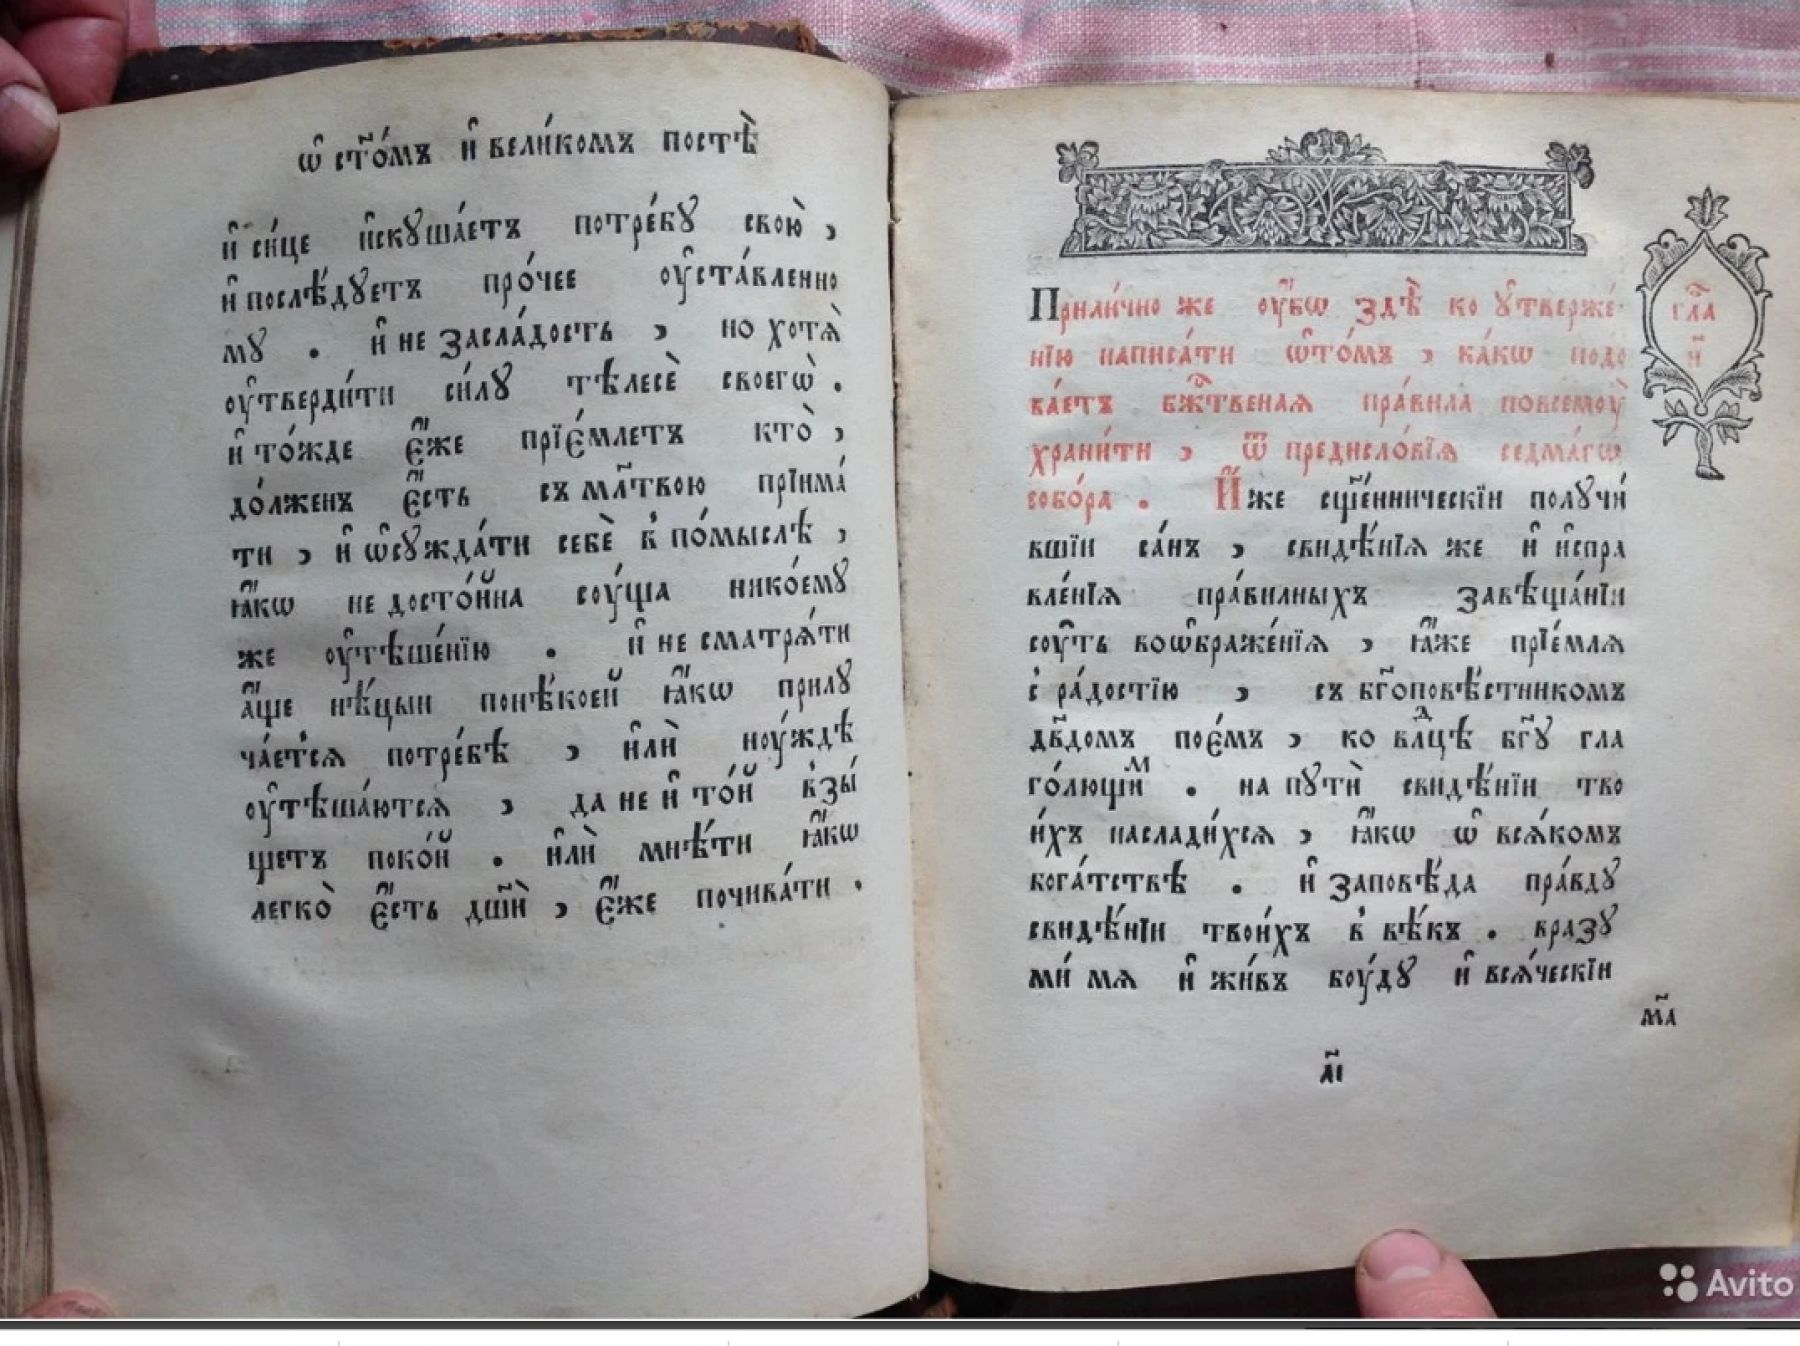 ѡ҆ ст҃о́мъ и҆ вели́комъ постѣ̀
и҆ си́це и҆скуша́етъ потре́бꙋ свою̀ ,
и҆ послѣ́дꙋетъ про́чее оу҆ста́вленно
мꙋ . и҆ не засла́дость , но хотѧ̀
оу҆тверди́ти си́лꙋ тѣлесѐ своегѡ̀ .
и҆ то́жде є҆́же прїе́млетъ кто̀ ,
до́лженъ є҆́сть съ мл҃твою прїима́
ти , и҆ ѡ҆сужда́ти себѐ в̾ по́мыслѣ ,
ꙗ҆́кѡ не досто́йна соу́ща нико́емꙋ
же оу҆тѣше́нїю . и҆ не сматрѧ́ти
а҆́ще нѣ́цыи понѣ́коей ꙗ҆́кѡ прилꙋ
ча́етсѧ потре́бѣ , и҆лѝ ноу́ждѣ
оу҆тѣша́ютсѧ , да не и҆ то́й в̾зы́
щетъ поко́й . и҆лѝ мнѣ́ти ꙗ҆́кѡ
легко̀ є҆́сть дш҃ѝ , є҆́же почива́ти .
Прили́чно же оу҆́бѡ здѣ̀ ко ᲂу҆тверже́
нїю написа́ти ѡ҆то́мъ , ка́кѡ подо
ба́етъ бж҃твеная пра́вила повсемоу̀
храни́ти , ѿ предисло́вїѧ седма́гѡ
собо́ра . И҆́же сщ҃е́нническїи полꙋчи́
вшїи са́нъ , свидѣ́нїѧ же и҆ и҆спра
вле́нїѧ пра́вилныхъ завѣща́нїи
соу́ть воѡбраже́нїѧ , ꙗ҆́же прїе́млѧ
с̾ ра́достїю , съ бг҃оповѣ́стникомъ
дв҃домъ пое́мъ , ко влⷣцѣ бг҃ꙋ гла
го́лющиⷨ . на пꙋтѝ свидѣ́нїи тво
и́хъ наслади́хсѧ , ꙗ҆́кѡ ѡ҆ всѧ́комъ
бога́тствѣ . и҆ заповѣ́да пра́вдꙋ
свидѣ́нїи твои́хъ в̾ вѣ́къ . вразꙋ
ми́ мѧ и҆ жи́въ боу́дꙋ и҆ всѧ́ческїи
гл҃а
и҃
м҃а
а҃і
Avito